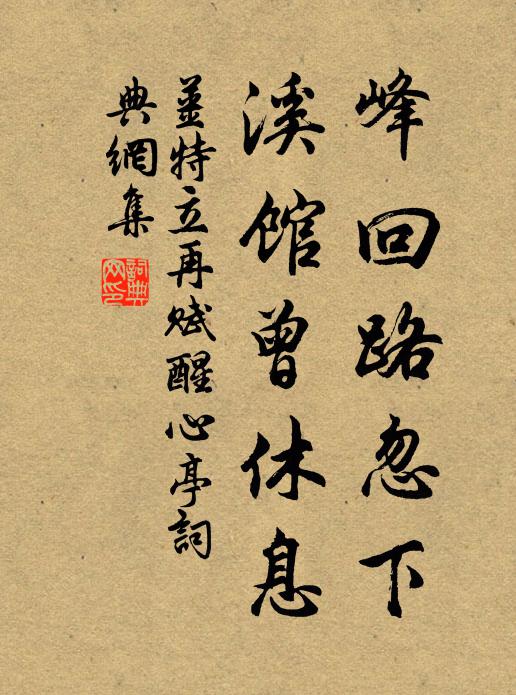 峰回路忽下
溪馆曾休息
薑特立再賦醒心亭詞
典網集
詞典網印